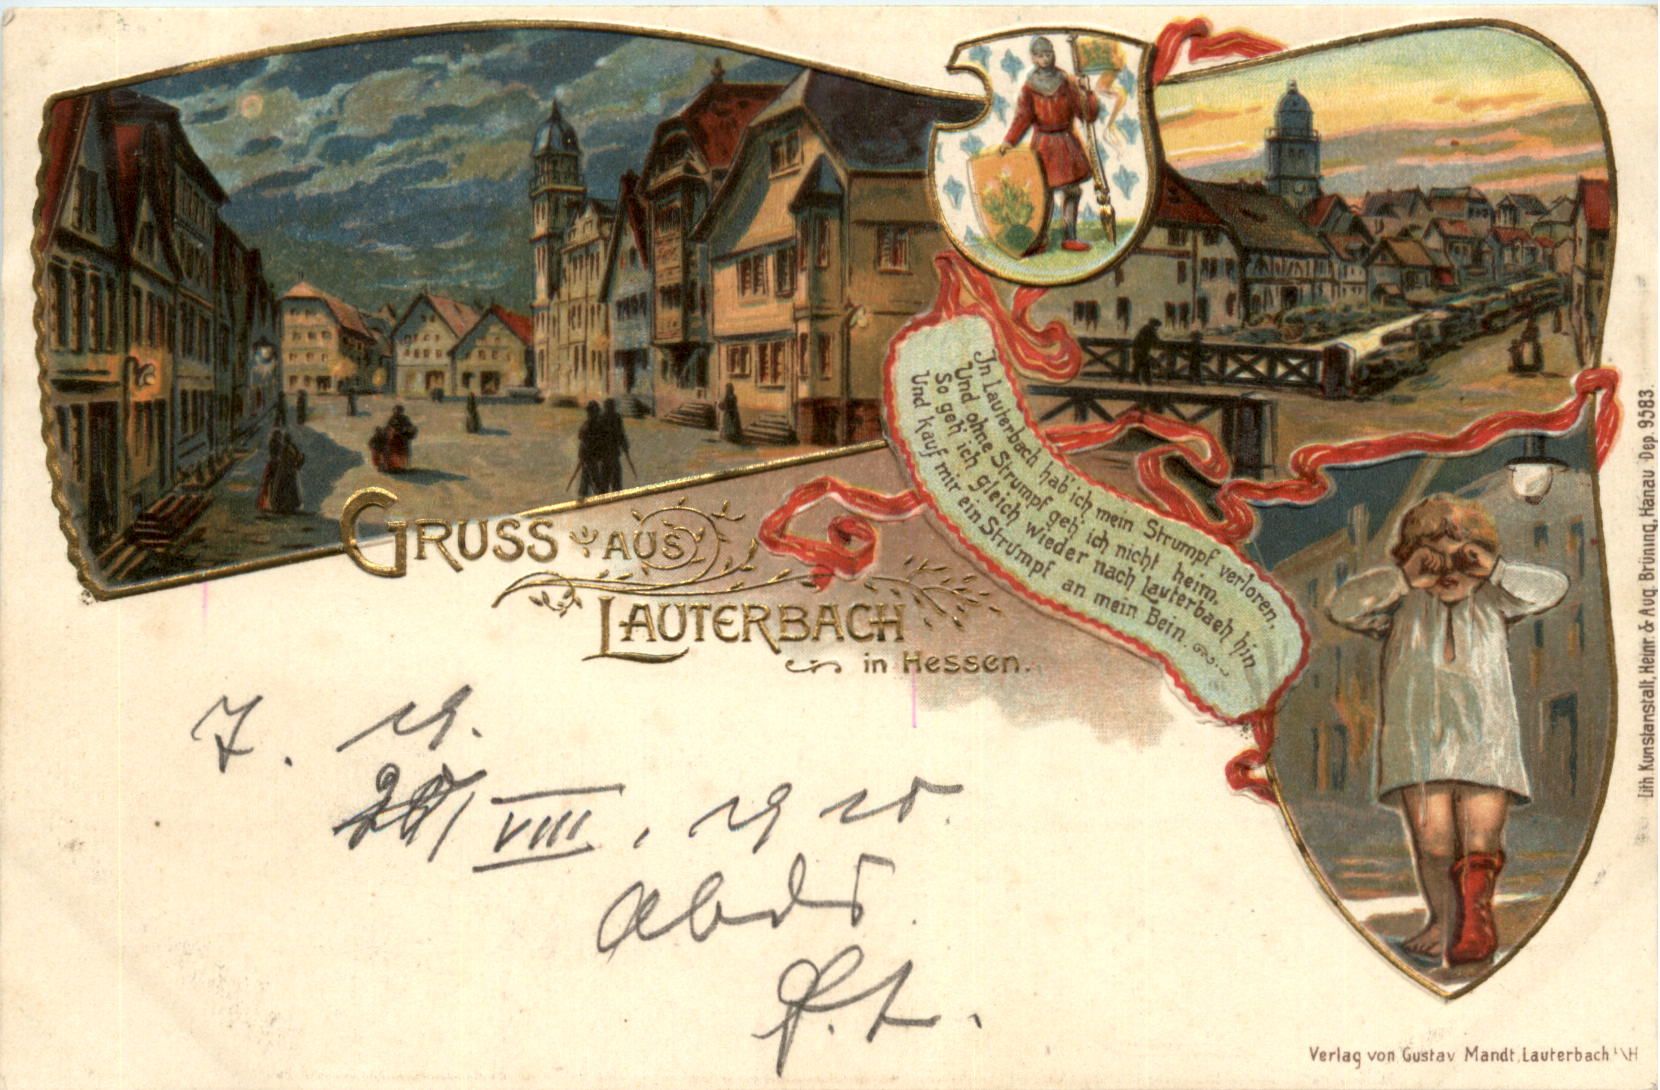 GRUSS AUS
LAUTERBACH
in Hessen.
In Lauterbach hab' ich mein Strumpf verloren,
Und ohne Strumpf geh' ich nicht heim,
So geh' ich gleich wieder nach Lauterbach hin
Und kauf' mir ein Strumpf an mein Bein.
VIII
P. L.
Lith Kunstanstalt, Heinr. & Aug. Brüning, Hanau Dep. 9583.
Verlag von Gustav Mandt, Lauterbach